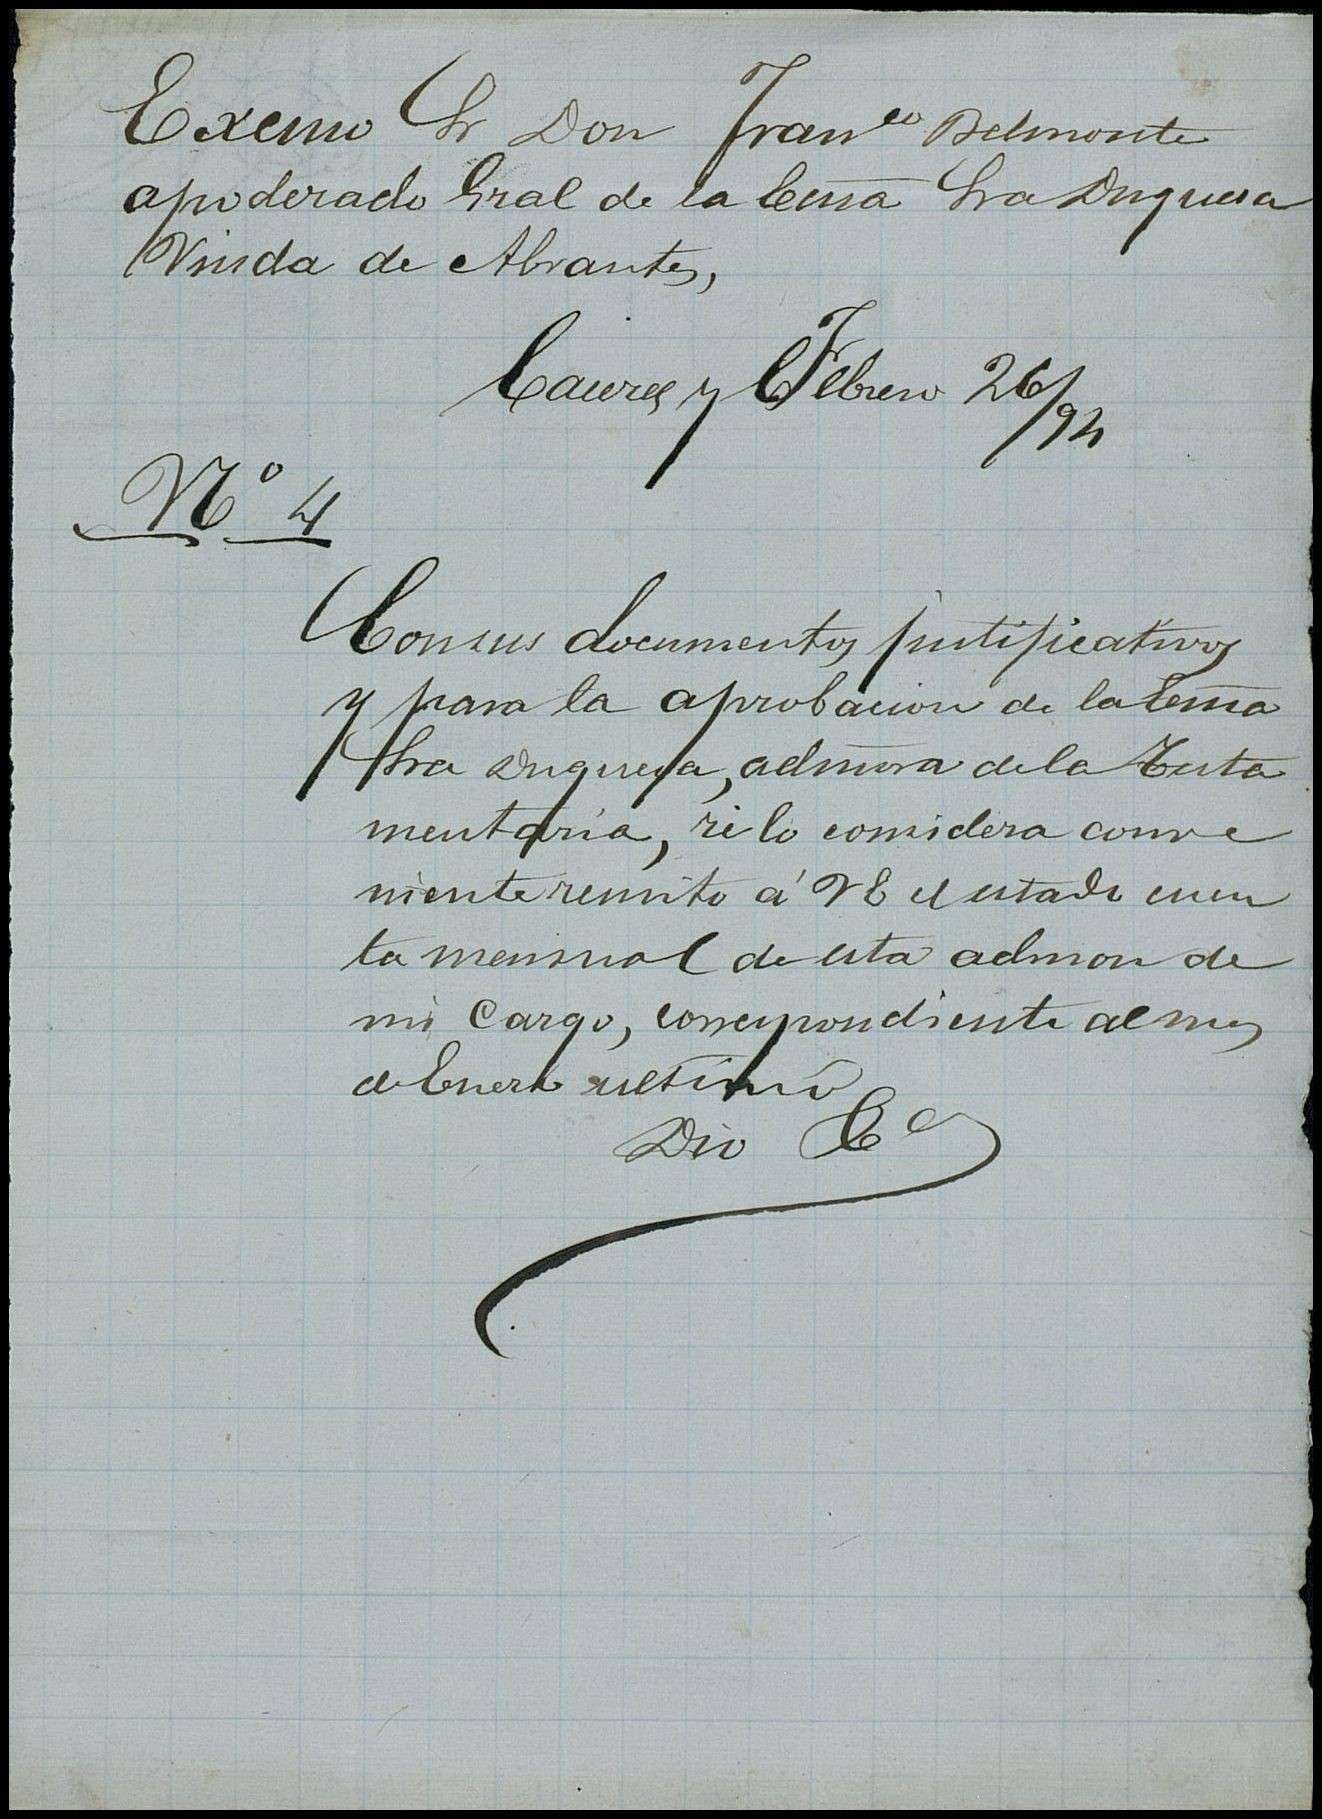 Excmo Sr Don Franco Belmonte
apoderado Gral de la Excma Sra Duquesa
Viuda de Abrantes,
Caceres y Febrero 26/94
No 4
Con sus documentos justificativos
y para la aprobacion de la Excma
Sra Duquesa, admora de la Testa
mentaria, si lo considera conve
niente remito á VE el estado cuen
ta mensual de esta admon de
mi cargo, correspondiente al mes
de Enero ultimo
Dio Ca